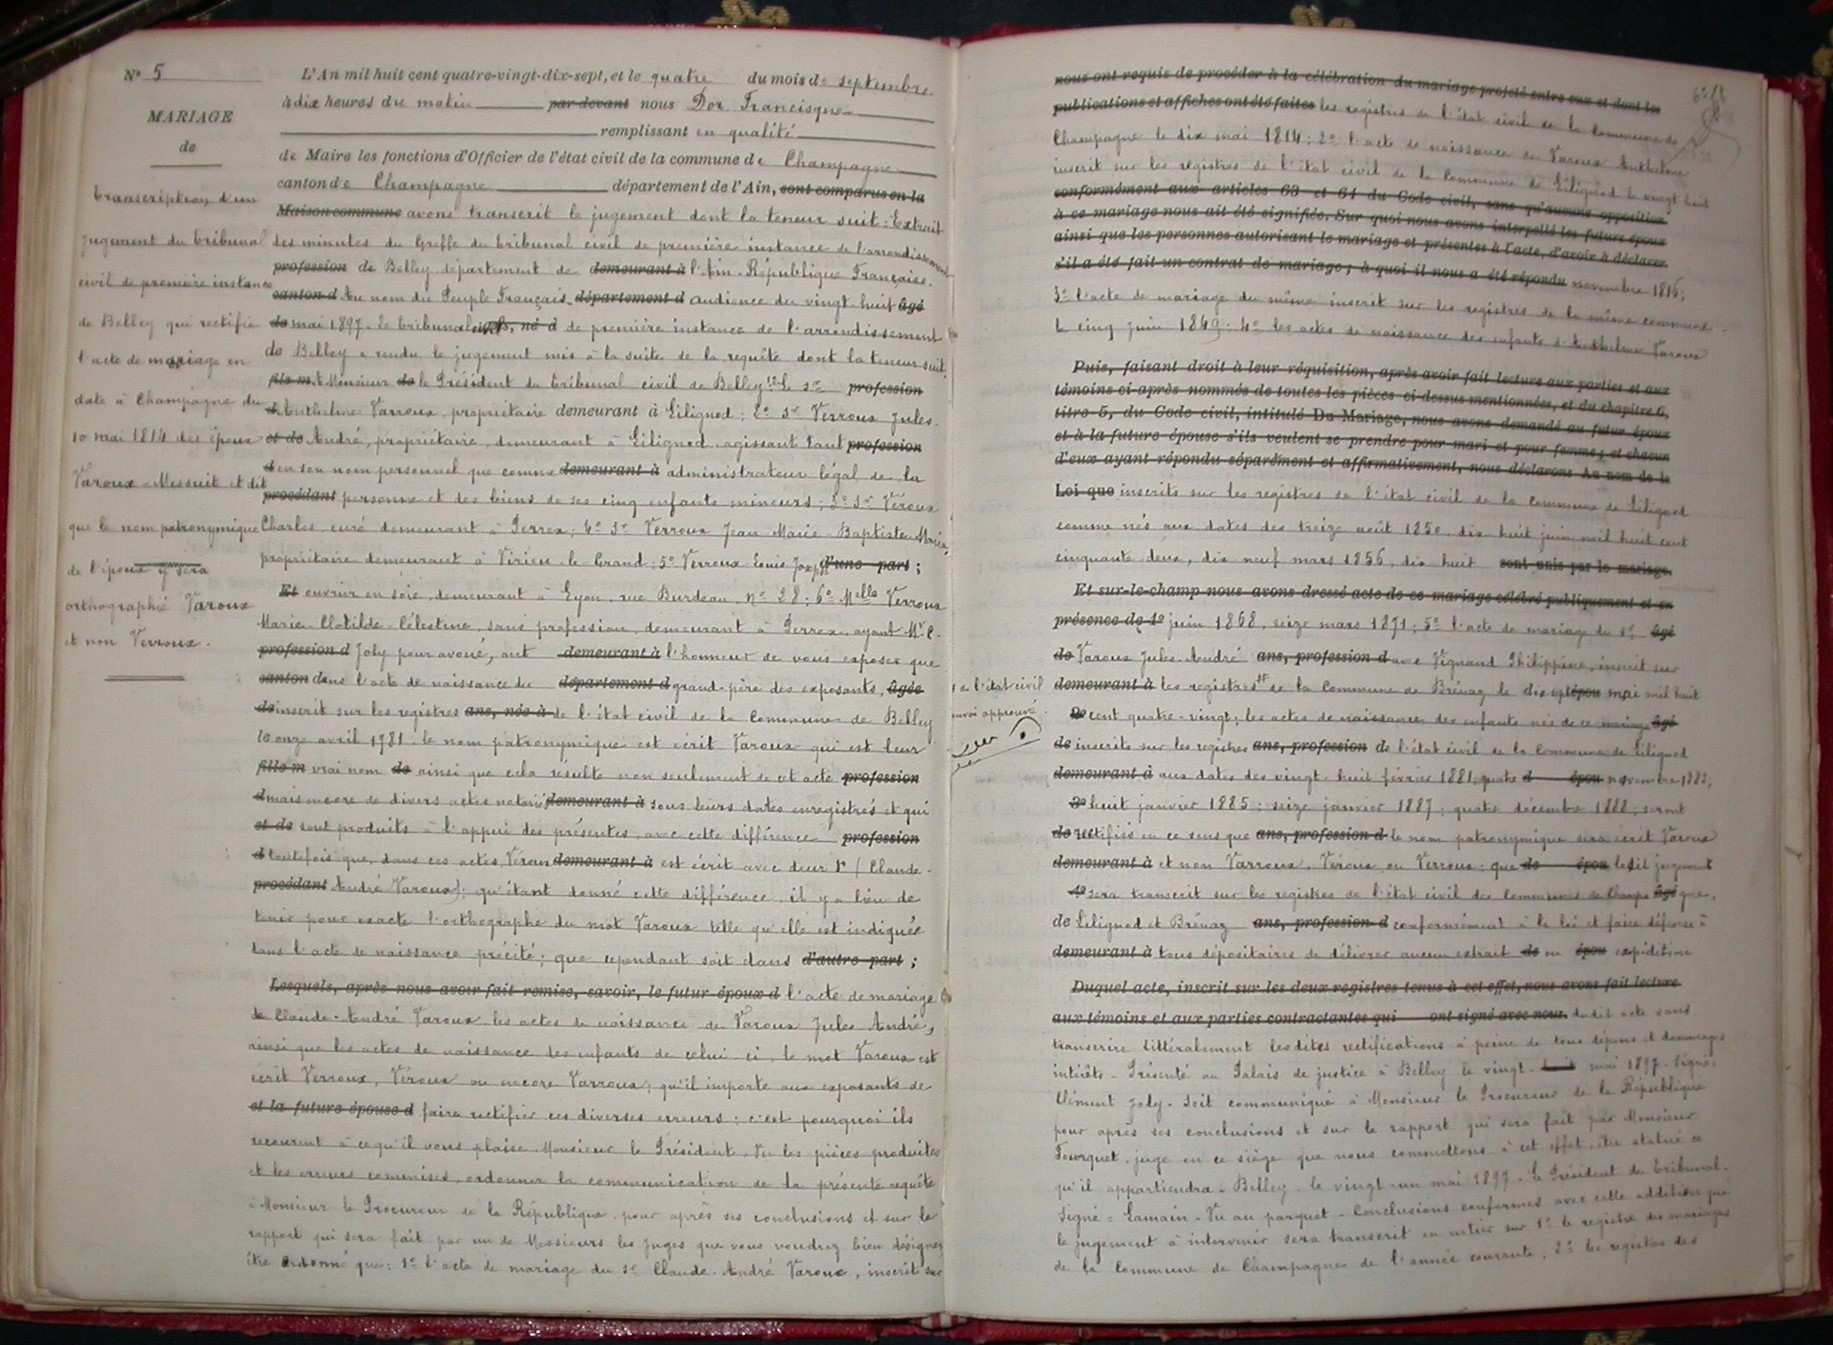 Nº 5
MARIAGE
de
transcription d'un
jugement du tribunal
civil de première instance
de Belley qui rectifie
l'acte de mariage en
date à Champagne du
10 mai 1814 des époux
Varoux-Messuit et dit
que le nom patronymique
de l'époux y sera
orthographié Varoux
et non Verroux.
L'An mil huit cent quatre-vingt-dix-sept, et le quatre du mois de septembre
à dix heures du matin par devant nous Dor Francisque
remplissant en qualité
de Maire les fonctions d'Officier de l'état civil de la commune de Champagne
canton de Champagne département de l'Ain, sont comparus en la
Maison commune avons transcrit le jugement dont la teneur suit : Extrait
des minutes du Greffe du tribunal civil de première instance de l'arrondissement
profession de Belley département de demeurant à l'Ain. République Française.
canton d Au nom du Peuple Français. département d audience du vingt huit âgé
de mai 1897. Le tribunal civil né d de première instance de l'arrondissement
de Belley a rendu le jugement mis à la suite de la requête dont la teneur suit.
fils m. A Monsieur de le Président du tribunal civil de Belley 1º le sr profession
d Anthelme Varroux, propriétaire demeurant à Lilignod ; 2º sr Verroux Jules-
et de André, propriétaire, demeurant à Lilignod agissant tant profession
d en son nom personnel que comme demeurant à administrateur légal de la
procédant personne et des biens de ses cinq enfants mineurs ; 3º sr Véroux
Charles, curé demeurant à Perrex ; 4º sr Verroux Jean Marie-Baptiste
propriétaire demeurant à Virieu le Grand ; 5º Verroux Louis Joseph d'une part ;
Et ouvrier en soie, demeurant à Lyon, rue Burdeau Nº 28 ; 6º Melle Verroux
Marie-Clotilde-Célestine, sans profession, demeurant à Perrex, ayant Mr C.
profession d Joly pour avoué, ont demeurant à l'honneur de vous exposer que
canton dans l'acte de naissance du département d grand-père des exposants, âgée
de inscrit sur les registres ans, née à de l'état civil de la Commune de Belley
le onze avril 1781 le nom patronymique est écrit Varoux qui est leur
fille m vrai nom de ainsi que cela résulte non seulement de cet acte profession
d mais encore de divers actes notariés demeurant à sous leurs dates enregistrés et qui
et de sont produits à l'appui des présentes, avec cette différence profession
d toutefois que, dans ces actes, Veroux demeurant à est écrit avec deux r (Claude-
procédant André Varoux) ; qu'étant donné cette différence, il y a lieu de
tenir pour exacte l'orthographe du mot Varoux telle qu'elle est indiquée
dans l'acte de naissance précité ; que cependant soit dans d'autre part ;
Lesquels, après nous avoir fait remise, savoir, le futur époux d l'acte de mariage
de Claude-André Varoux les actes de naissance de Varoux Jules André,
ainsi que les actes de naissance des enfants de celui-ci, le mot Varoux est
écrit Verroux, Véroux ou encore Varroux ; qu'il importe aux exposants de
et la future épouse d faire rectifier ces diverses erreurs ; c'est pourquoi ils
recourent à ce qu'il vous plaise, Monsieur le Président, Vu les pièces produites
et les erreurs commises, ordonner la communication de la présente requête
à Monsieur le Procureur de la République, pour après ses conclusions et sur le
rapport qui sera fait par un de Messieurs les Juges que vous voudrez bien désigner
être ordonné que : 1º l'acte de mariage du sr Claude-André Varoux, inscrit sur
de l'état civil
renvoi approuvé.
nous ont requis de procéder à la célébration du mariage projeté entre eux et dont les
publications et affiches ont été faites les registres de l'état civil de la commune de
Champagne le dix mai 1814 ; 2º l'acte de naissance de Varoux Anthelme
inscrit sur les registres de l'état civil de la Commune de Lilignod le vingt huit
conformément aux articles 63 et 64 du Code civil, sans qu'aucune opposition
à ce mariage nous ait été signifiée. Sur quoi nous avons interpellé les futurs époux
ainsi que les personnes autorisant le mariage et présentes à l'acte, d'avoir à déclarer
s'il a été fait un contrat de mariage ; à quoi il nous a été répondu novembre 1816 ;
3º l'acte de mariage du même inscrit sur les registres de la même commune
le cinq juin 1849 ; 4º les actes de naissance des enfants d'Anthelme Varoux
Puis, faisant droit à leur réquisition, après avoir fait lecture aux parties et aux
témoins ci-après nommés de toutes les pièces ci-dessus mentionnées, et du chapitre 6,
titre 5, du Code civil, intitulé Du Mariage, nous avons demandé au futur époux
et à la future épouse s'ils veulent se prendre pour mari et pour femme ; et chacun
d'eux ayant répondu séparément et affirmativement, nous déclarons Au nom de la
Loi que inscrits sur les registres de l'état civil de la commune de Lilignod
comme nés aux dates des treize août 1850, dix huit juin mil huit cent
cinquante deux, dix neuf mars 1856, dix huit sont unis par le mariage.
Et sur-le-champ nous avons dressé acte de ce mariage célébré publiquement et en
présence de 1º juin 1868, seize mars 1871 ; 5º l'acte de mariage du sr âgé
de Varoux Jules-André ans, profession d avec Vignand Philippine, inscrit sur
demeurant à les registres de la Commune de Brénaz le dix sept épou mai mil huit
2º cent quatre-vingt ; les actes de naissance des enfants nés de ce mariage âgé
de inscrits sur les registres ans, profession de l'état civil de la Commune de Lilignod
demeurant à aux dates des vingt-huit février 1881, quatre d épou novembre 1883,
3º huit janvier 1885 ; seize janvier 1887 ; quatre décembre 1888 ; seront
de rectifiés en ce sens que ans, profession d le nom patronymique sera écrit Varoux
demeurant à et non Varroux, Véroux, ou Verroux ; que de épou ledit jugement
4º sera transcrit sur les registres de l'état civil des Communes de Champa âgé gne,
de Lilignod et Brénaz ans, profession d conformément à la loi et faire défense à
demeurant à tous dépositaires de délivrer aucun extrait de ou épou expéditions
Duquel acte, inscrit sur les deux registres tenus à cet effet, nous avons fait lecture
aux témoins et aux parties contractantes qui ont signé avec nous. dudit acte sans
transcrire littéralement lesdites rectifications à peine de tous dépens et dommages
intérêts. Présenté au Palais de justice à Belley le vingt mai 1897. Signé :
Clément Joly. Soit communiqué à Monsieur le Procureur de la République
pour après ses conclusions et sur le rapport qui sera fait par Monsieur
Fourquet, juge en ce siège que nous commettons à cet effet, être statué ce
qu'il appartiendra. Belley, le vingt-un mai 1897. Le Président du tribunal.
Signé = Lamain. Vu au parquet. Conclusions conformes avec cette addition que
le jugement à intervenir sera transcrit en entier sur 1º le registre des mariages
de la Commune de Champagne de l'année courante, 2º les registres des